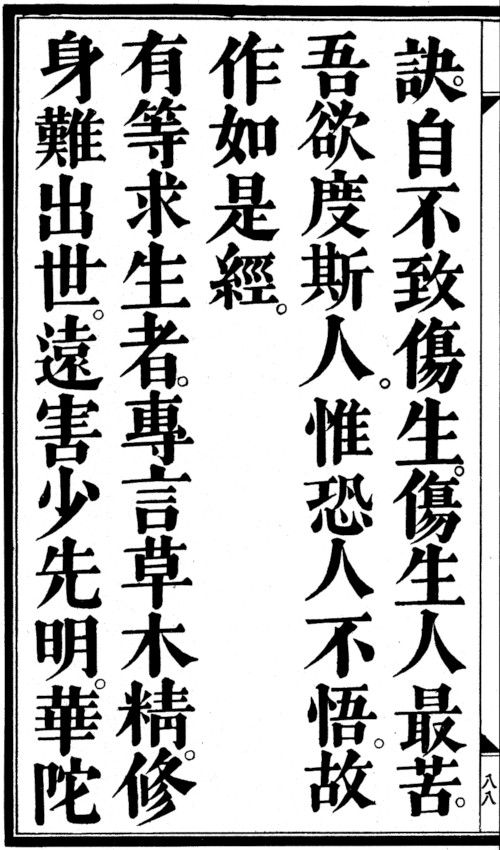 訣。自不致傷生。傷生人最苦。
吾欲度斯人。惟恐人不悟。故
作如是經。
有等求生者。專言草木精。修
身難出世。遠害少先明。華陀
八八